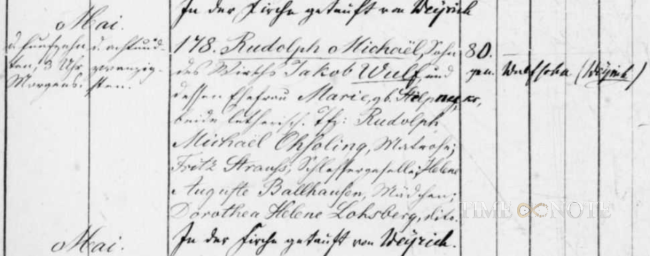 In der Kirche getauft von Weyrich
Mai.
d. fünfzehn-
ten, 3 Uhr
Morgens.
d. achtund-
zwanzig-
sten.
178. Rudolph Michaël, Sohn
des Wirths Jakob Wulf und
dessen Ehefrau Marie, gb.
beide lutherisch. Tfz: Rudolph
Michaël Ohsoling, Matrose;
Fritz Strauss, Schlossergeselle; Helene
Auguste Ballhausen, Mädchen;
Dorothea Helene Lohsberg, dito.
In der Kirche getauft von Weyrich.
80.
gen.
(Weyrich)
Mai.
TIMENOTE